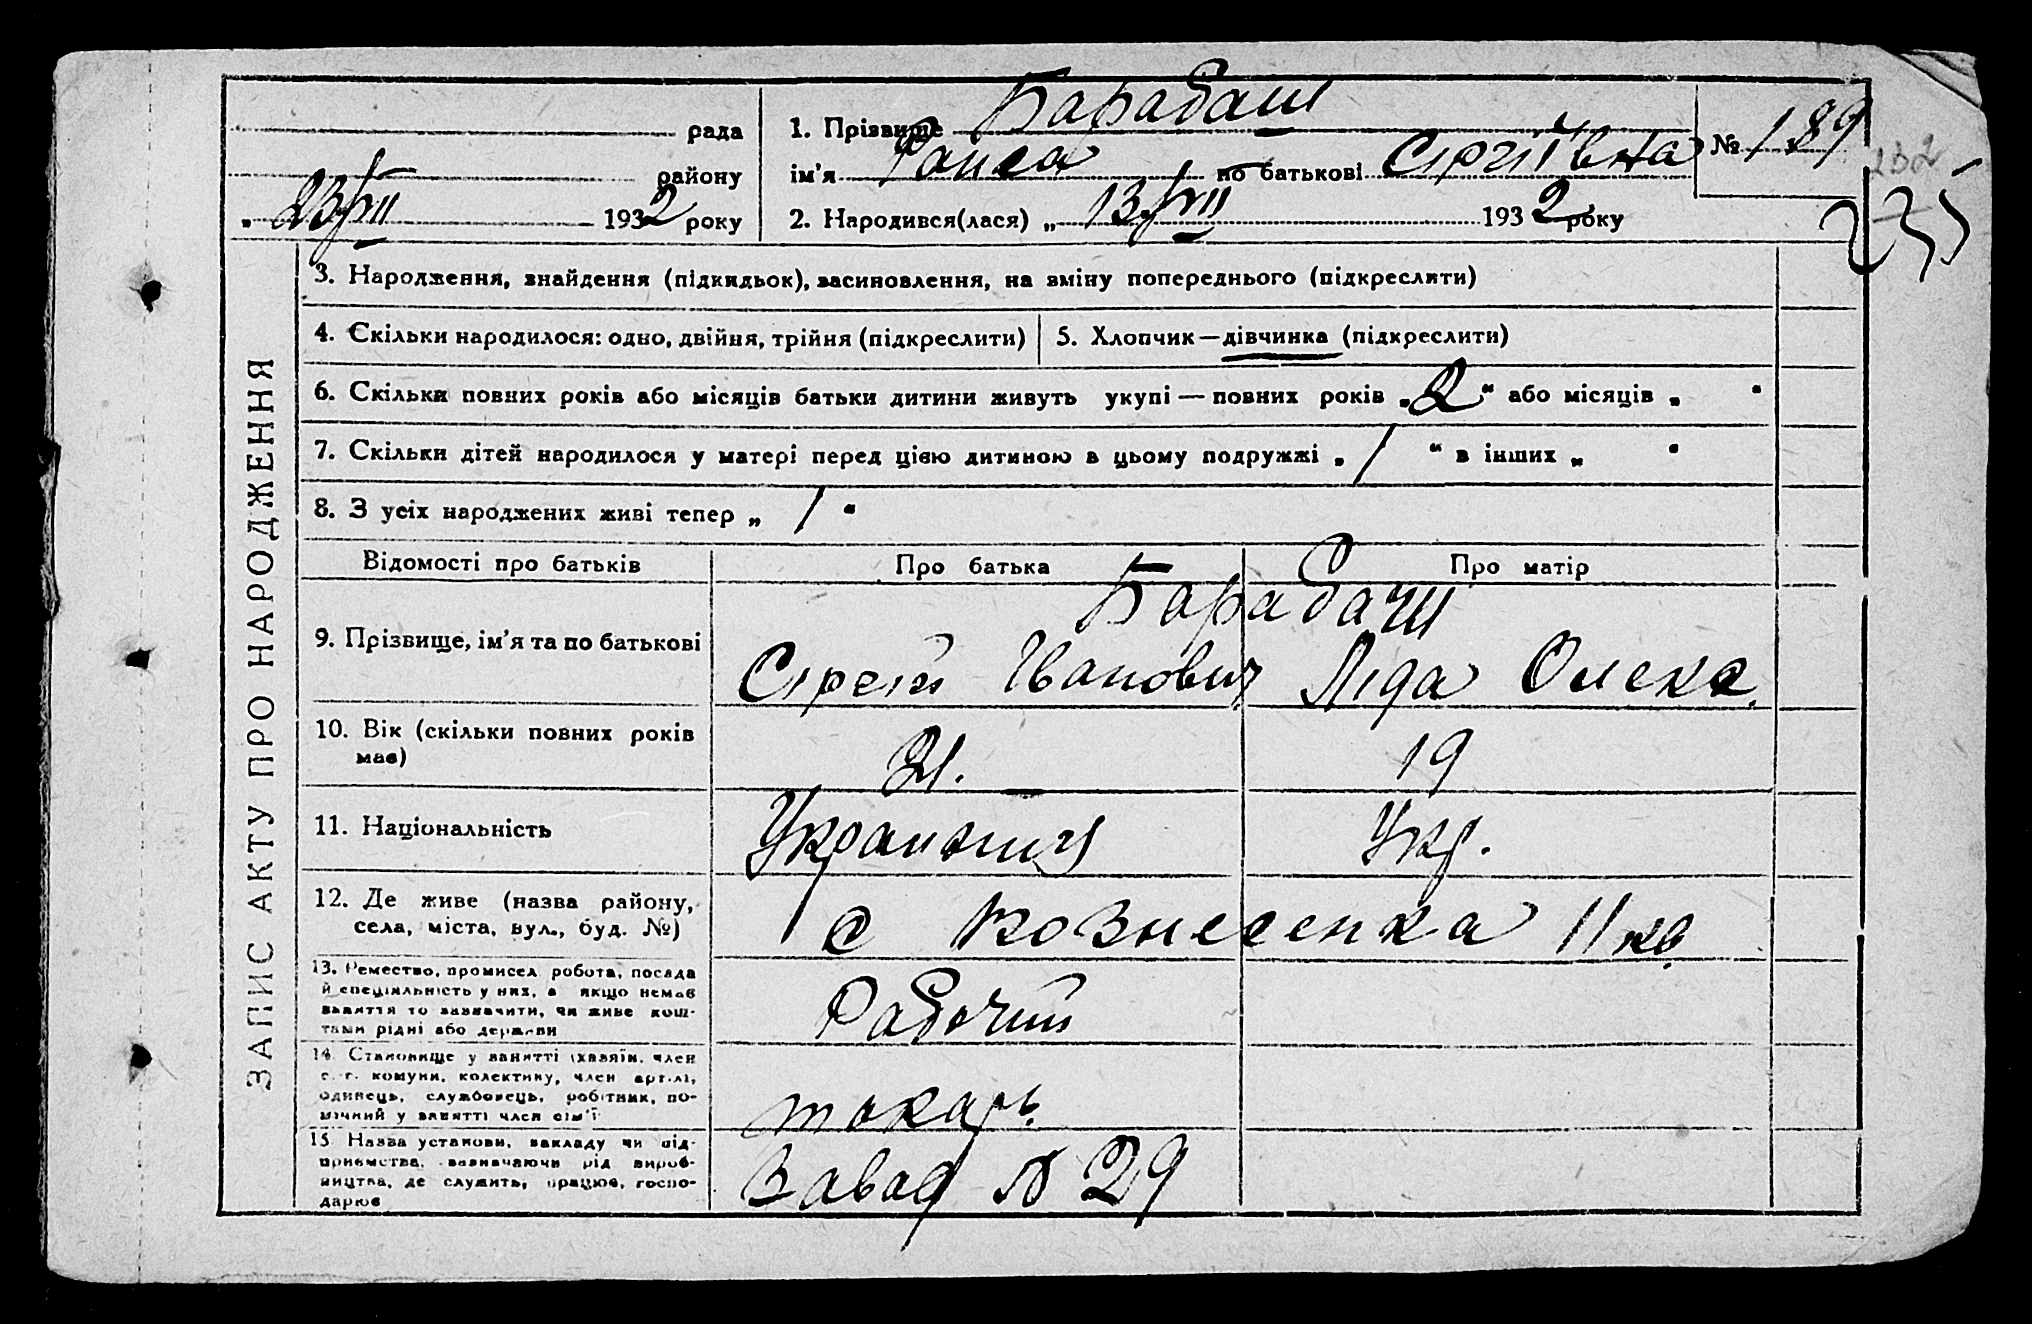 рада
району
„ 23/VII 1932 року
1. Прізвище Барабаш
ім’я Раиса по батькові Сіргіївна
№ 189
232
235
2. Народився(лася) „ 13/VII 1932 року
ЗАПИС АКТУ ПРО НАРОДЖЕННЯ
3. Народження, знайдення (підкидьок), засиновлення, на зміну попереднього (підкреслити)
4. Скільки народилося: одно, двійня, трійня (підкреслити)
5. Хлопчик—дівчинка (підкреслити)
6. Скільки повних років або місяців батьки дитини живуть укупі — повних років „ 2 “ або місяців „ “
7. Скільки дітей народилося у матері перед цією дитиною в цьому подружжі „ 1 “ в інших „ “
8. З усіх народжених живі тепер „ 1 “
Відомості про батьків
Про батька
Про матір
9. Прізвище, ім’я та по батькові
Барабаш
Сіргій Іванович
Ліда Олекс.
10. Вік (скільки повних років
має)
21.
19
11. Національність
Украинец
Укр.
12. Де живе (назва району,
села, міста, вул., буд. №)
с Вознесенка 11 кв.
13. Ремество, промисел робота, посада
й спеціяльність у них, а якщо немає
заняття то зазначити, чи живе кош-
тами рідні або держави
Рабочий
14. Становище у занятті (хазяїн, член
с.-г. комуни, колективу, член артілі,
одинець, службовець, робітник, по-
мічний у занятті член сім’ї
токарь.
15. Назва установи, закладу чи під-
приємства, зазначаючи рід вироб-
ництва, де служить, працює, госпо-
дарює
Завод № 29